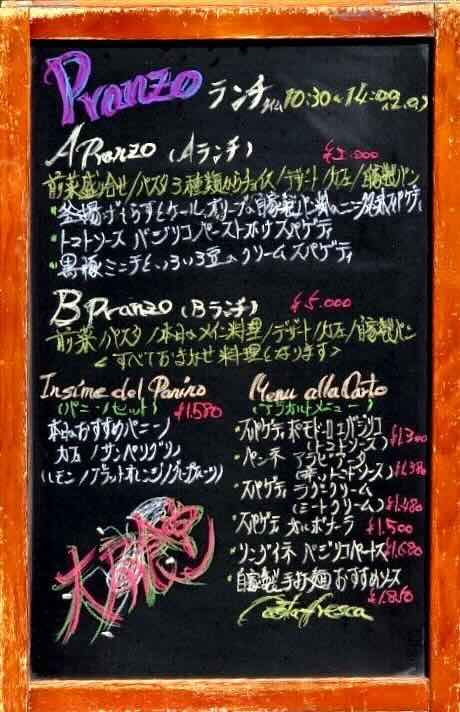 Pranzo ランチタイム 10:30~14:00
A Pranzo (Aランチ) ¥2.000
前菜盛り合せ/パスタ3種類からチョイス/デザート/カフェ/自家製パン
・釜揚げしらすとケール、オリーブの自家製パン粉のニンニク スパゲティ
・トマトソース バジリコペースト スパゲティ
・黒豚ミンチといろいろ豆のクリームスパゲティ
B Pranzo (Bランチ) ¥5.000
前菜/パスタ/本日のメイン料理/デザート/カフェ/自家製パン
<すべておまかせ料理となります>
Insime del Panino
(パニーノセット) ¥1.580
本日のおすすめパニーノ
カフェ/サンペレグリノ
(レモン/ブラッドオレンジ/グレープフルーツ)
Menu alla Carta
(アラカルトメニュー)
・スパゲティ ポモドーロ エ バジリコ
(トマトソース) ¥1.300
・ペンネ アラビアータ
(辛いトマトソース) ¥1.380
・スパゲティ ラグー クリーム
(ミートクリーム) ¥1.480
・スパゲティ カルボナーラ ¥1.500
・リングイネ バジリコペースト ¥1.680
・自家製手打ち麺 おすすめソース
¥1.850
Pasta fresca